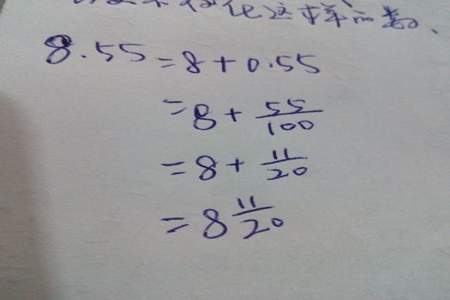 化这样的数、
8.55=8+0.55
=8+55/100
=8+11/20
=8 11/20